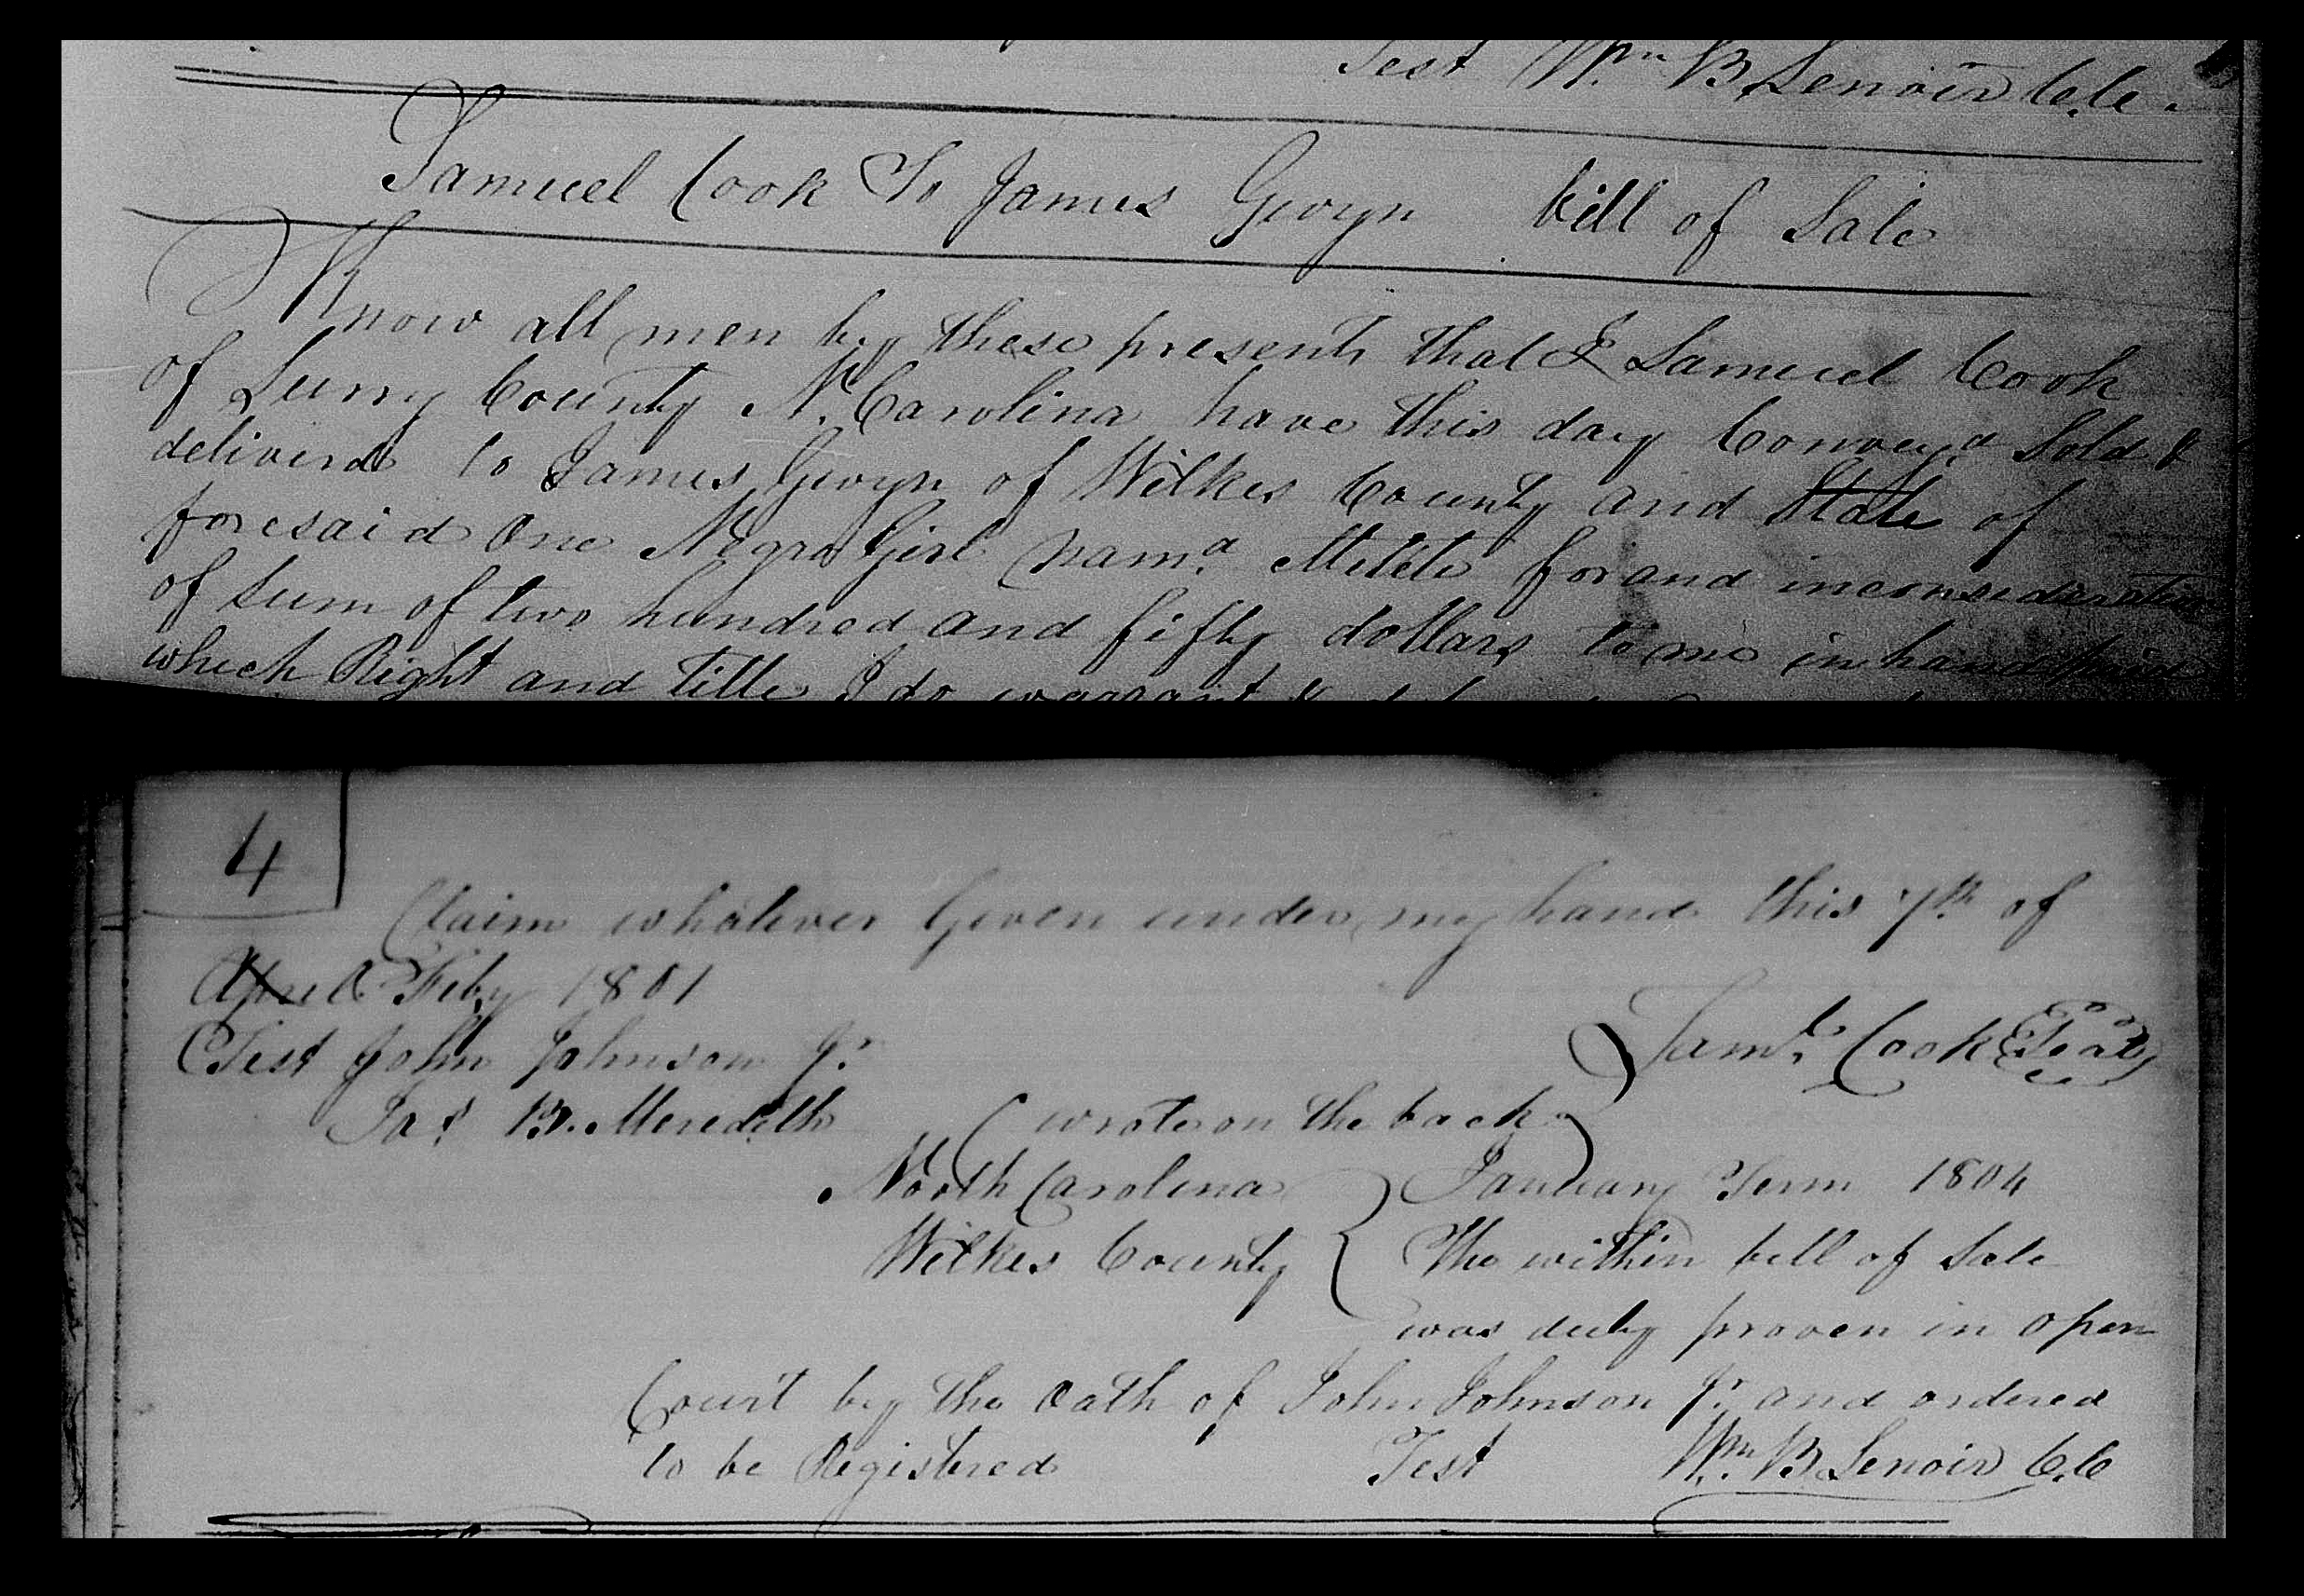 Test Wm B. Lenoir C.C.
Samuel Cook To James Gwyn bill of Sale
Know all men by these presents that I Samuel Cook
of Surry County N. Carolina have this day Convey.d Sold &
deliverd to James Gwyn of Wilkes County and State of
foresaid One Negro Girl nam.d for and inconsideration
of Sum of two hundred and fifty dollars to me in hand paid
which Right and Title I do warrant &
4
Claim whatever Given under my hand this 7th of
April Feby 1801
Saml. Cook Seal
Test John Johnson Jr.
Jas. B. Meredith
wrote on the back
North Carolina January Term 1804
Wilkes County The within bill of Sale
was duly proven in open
Court by the Oath of John Johnson Jr. and ordered
to be Registered Test Wm. B. Lenoir C.C